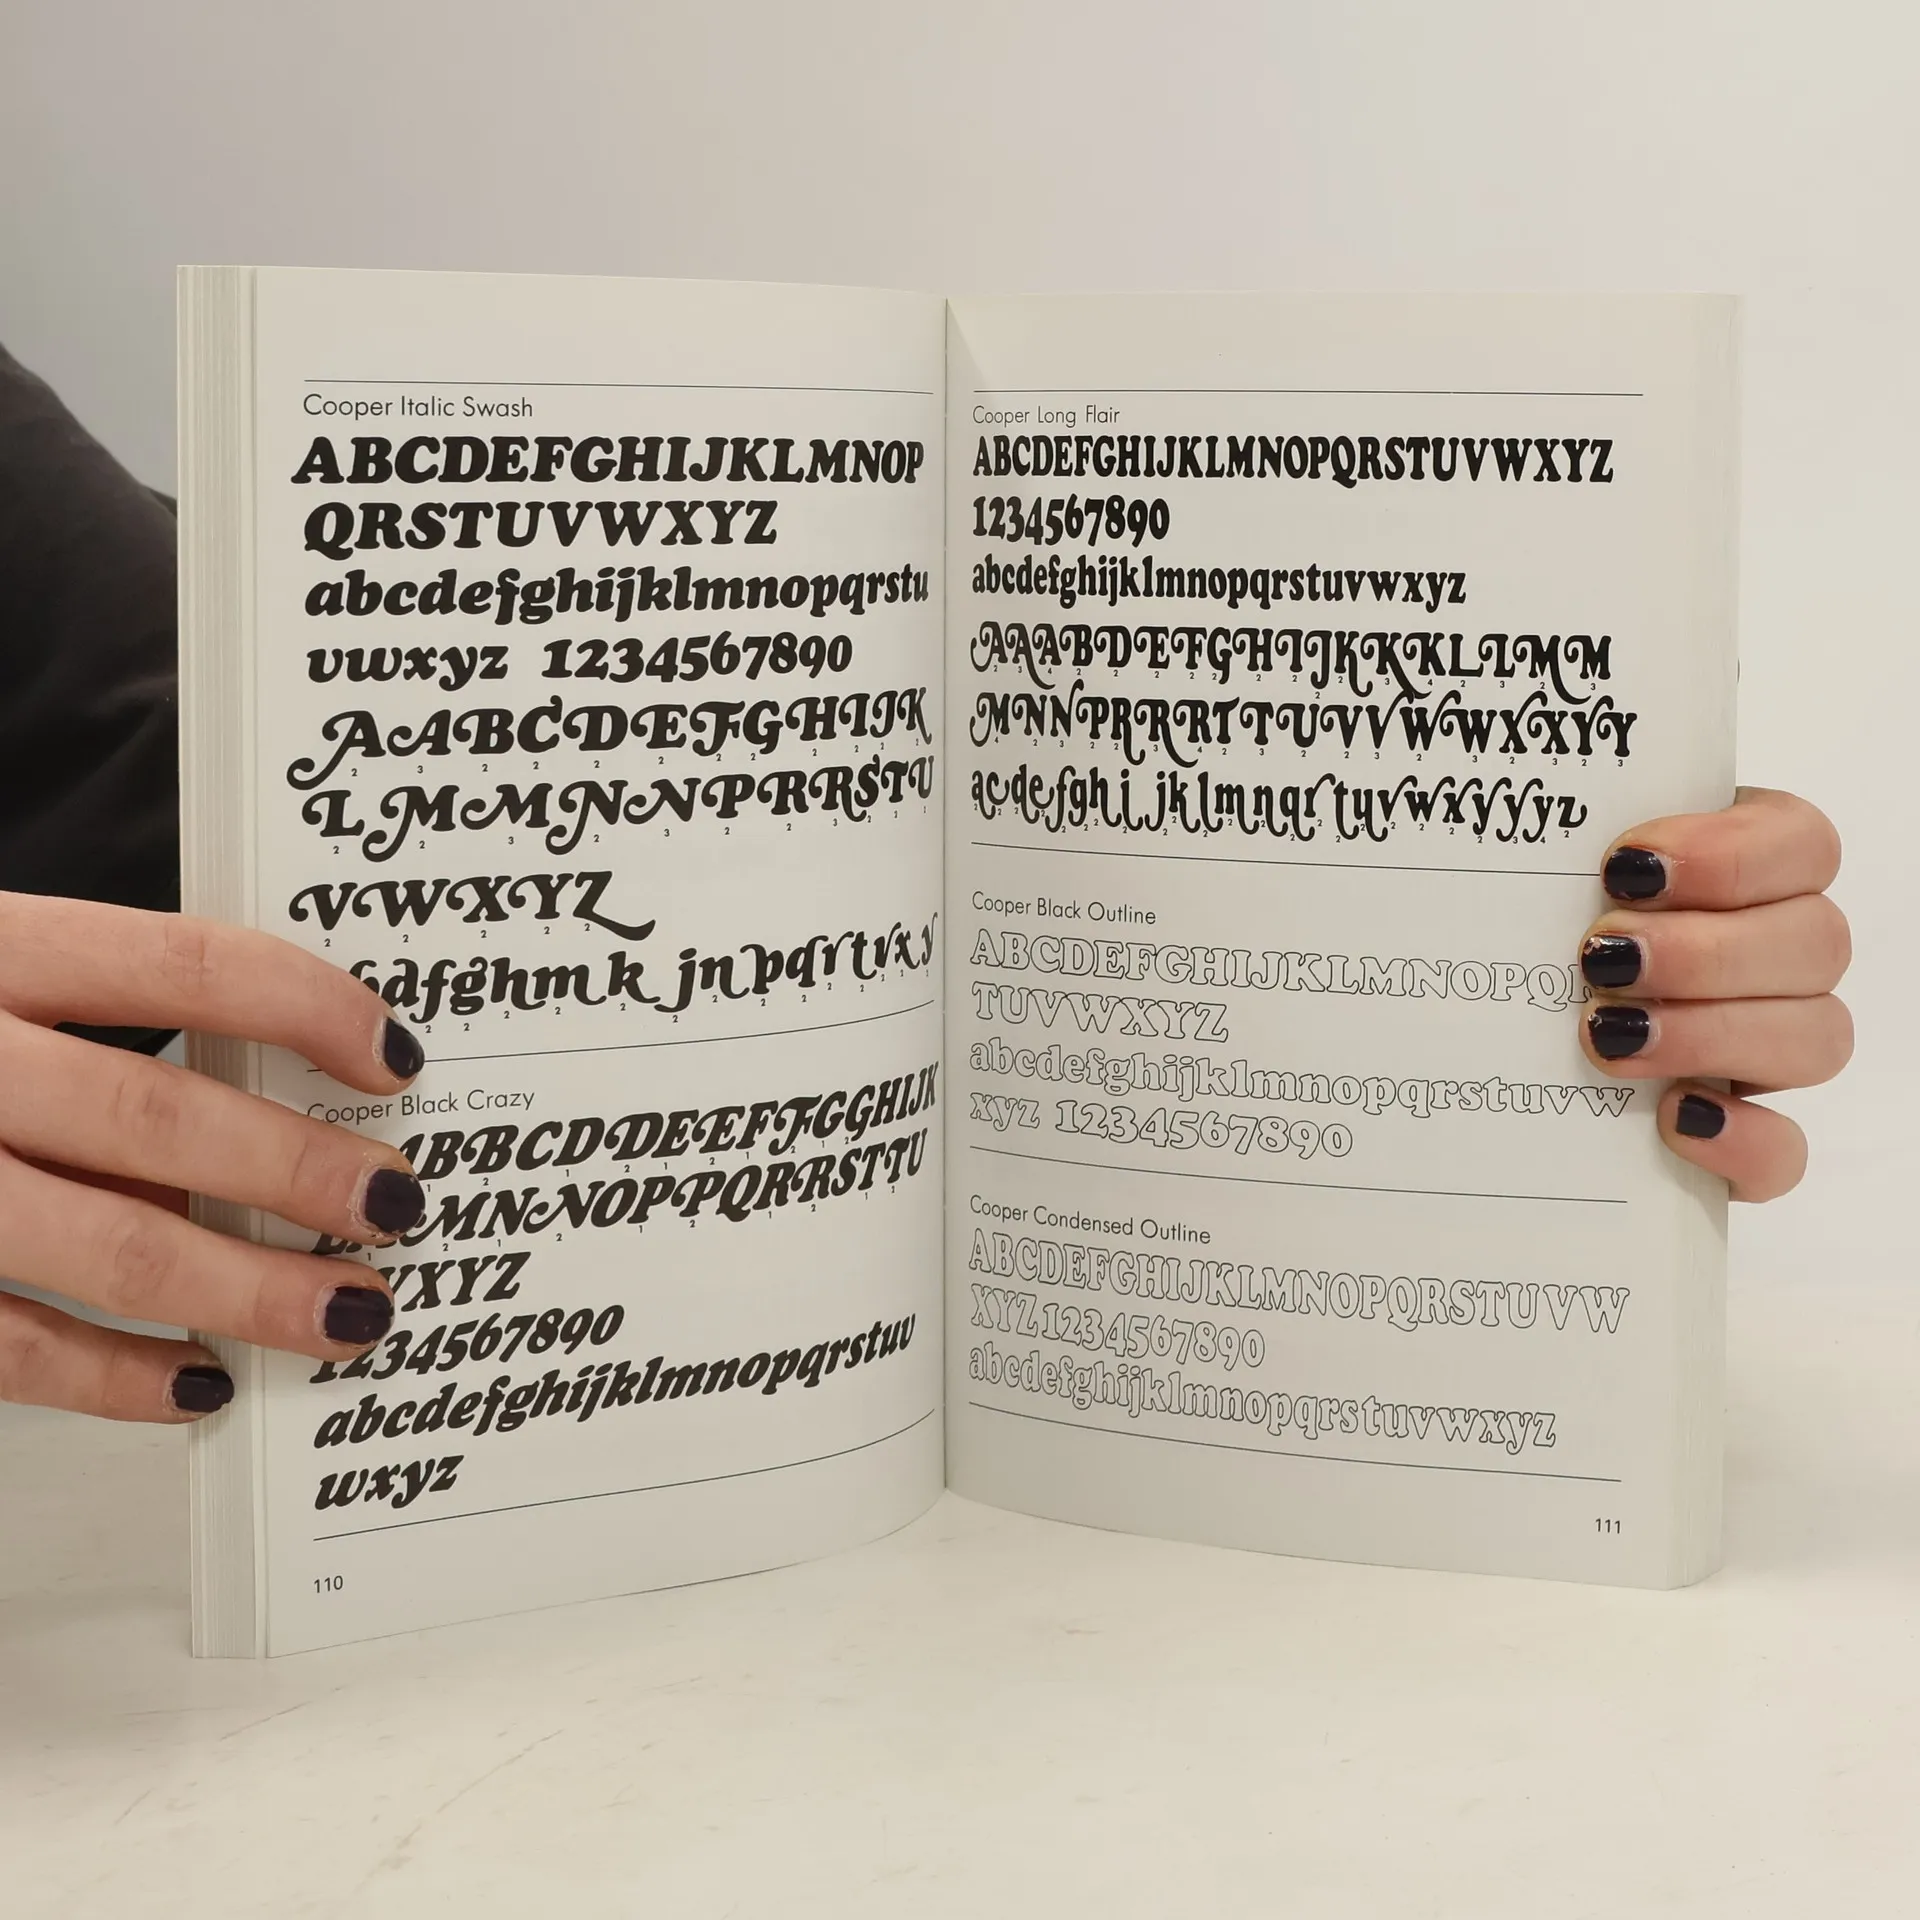 Cooper Italic Swash
ABCDEFGHIJKLMNOP
QRSTUVWXYZ
abcdefghijklmnopqrstu
vwxyz 1234567890
AABCDEFGHIJK
2 3 2 2 2 2 2 2 2 2 1
LMMNNPRRSTU
2 2 3 2 3 2 2 3 2 1 1
VWXYZ
2 2 2 2 2
dfghmk jnpqrtvxy
Cooper Black Crazy
BBCDDEEFFGGHIJK
MNNOPPQRRSTTU
XYZ
1234567890
abcdefghijklmnopqrstuv
wxyz
110
Cooper Long Flair
ABCDEFGHIJKLMNOPQRSTUVWXYZ
1234567890
abcdefghijklmnopqrstuvwxyz
AAABDEFGHIJKKKLLMM
MNNPRRRTTUVVWWXXYY
acdefghijklmnqrtuvwxyyyz
Cooper Black Outline
ABCDEFGHIJKLMNOPQ
TUVWXYZ
abcdefghijklmnopqrstuvw
xyz 1234567890
Cooper Condensed Outline
ABCDEFGHIJKLMNOPQRSTUVW
XYZ1234567890
abcdefghijklmnopqrstuvwxyz
111